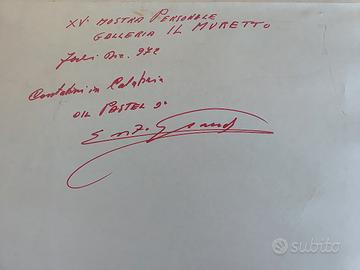 XV. MOSTRA PERSONALE
GALLERIA IL MURETTO
Dic. 972
Contadini in Calabria
OIL PASTEL
subito